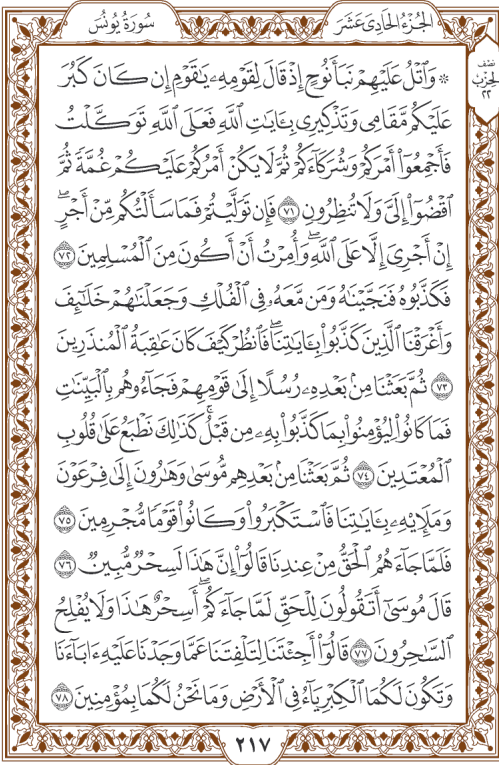 الجُزْءُ الحَادِى عَشَرَ
سُورَةُ يُونُسَ
نصف
الحزب
٢٢
۞ وَٱتۡلُ عَلَيۡهِمۡ نَبَأَ نُوحٍ إِذۡ قَالَ لِقَوۡمِهِۦ يَٰقَوۡمِ إِن كَانَ كَبُرَ
عَلَيۡكُم مَّقَامِى وَتَذۡكِيرِى بِـَٔايَٰتِ ٱللَّهِ فَعَلَى ٱللَّهِ تَوَكَّلۡتُ
فَأَجۡمِعُوٓاْ أَمۡرَكُمۡ وَشُرَكَآءَكُمۡ ثُمَّ لَا يَكُنۡ أَمۡرُكُمۡ عَلَيۡكُمۡ غُمَّةٗ ثُمَّ
ٱقۡضُوٓاْ إِلَىَّ وَلَا تُنظِرُونِ ٧١ فَإِن تَوَلَّيۡتُمۡ فَمَا سَأَلۡتُكُم مِّنۡ أَجۡرٍۖ
إِنۡ أَجۡرِىَ إِلَّا عَلَى ٱللَّهِۖ وَأُمِرۡتُ أَنۡ أَكُونَ مِنَ ٱلۡمُسۡلِمِينَ ٧٢
فَكَذَّبُوهُ فَنَجَّيۡنَٰهُ وَمَن مَّعَهُۥ فِى ٱلۡفُلۡكِ وَجَعَلۡنَٰهُمۡ خَلَٰٓئِفَ
وَأَغۡرَقۡنَا ٱلَّذِينَ كَذَّبُواْ بِـَٔايَٰتِنَاۖ فَٱنظُرۡ كَيۡفَ كَانَ عَٰقِبَةُ ٱلۡمُنذَرِينَ
٧٣ ثُمَّ بَعَثۡنَا مِنۢ بَعۡدِهِۦ رُسُلًا إِلَىٰ قَوۡمِهِمۡ فَجَآءُوهُم بِٱلۡبَيِّنَٰتِ
فَمَا كَانُواْ لِيُؤۡمِنُواْ بِمَا كَذَّبُواْ بِهِۦ مِن قَبۡلُۚ كَذَٰلِكَ نَطۡبَعُ عَلَىٰ قُلُوبِ
ٱلۡمُعۡتَدِينَ ٧٤ ثُمَّ بَعَثۡنَا مِنۢ بَعۡدِهِم مُّوسَىٰ وَهَٰرُونَ إِلَىٰ فِرۡعَوۡنَ
وَمَلَإِيْهِۦ بِـَٔايَٰتِنَا فَٱسۡتَكۡبَرُواْ وَكَانُواْ قَوۡمٗا مُّجۡرِمِينَ ٧٥
فَلَمَّا جَآءَهُمُ ٱلۡحَقُّ مِنۡ عِندِنَا قَالُوٓاْ إِنَّ هَٰذَا لَسِحۡرٞ مُّبِينٞ ٧٦
قَالَ مُوسَىٰٓ أَتَقُولُونَ لِلۡحَقِّ لَمَّا جَآءَكُمۡۖ أَسِحۡرٌ هَٰذَا وَلَا يُفۡلِحُ
ٱلسَّٰحِرُونَ ٧٧ قَالُوٓاْ أَجِئۡتَنَا لِتَلۡفِتَنَا عَمَّا وَجَدۡنَا عَلَيۡهِ ءَابَآءَنَا
وَتَكُونَ لَكُمَا ٱلۡكِبۡرِيَآءُ فِى ٱلۡأَرۡضِ وَمَا نَحۡنُ لَكُمَا بِمُؤۡمِنِينَ ٧٨
٢١٧